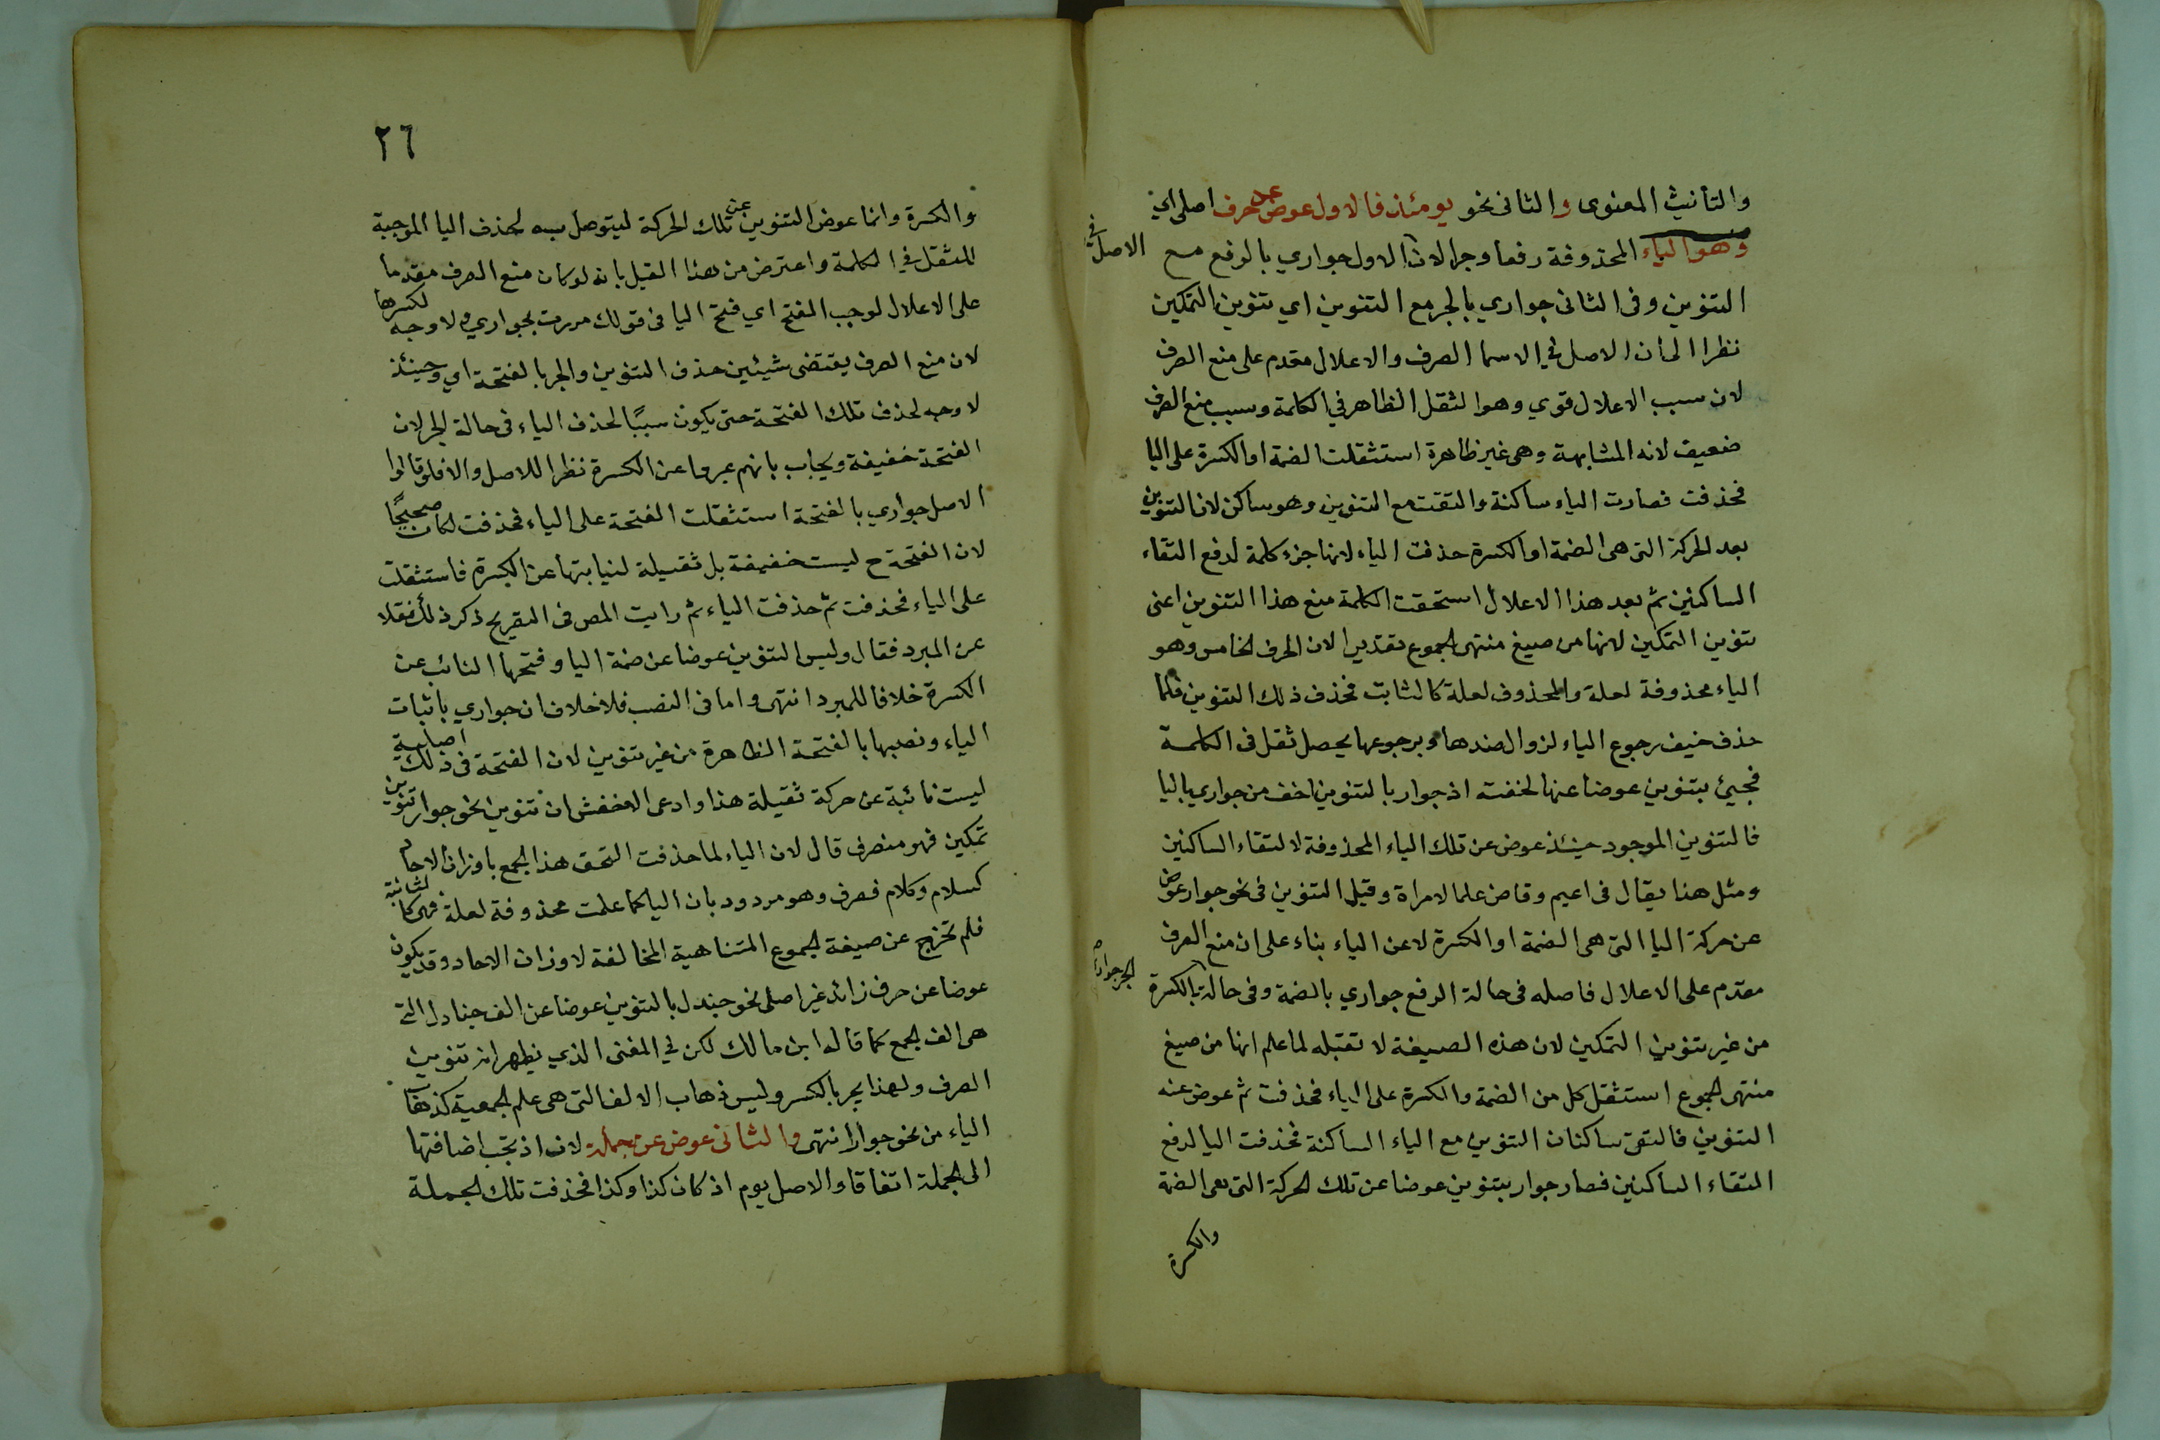 والتأنيث المعنوى والثانى نحو يومئذ فالاول عوض عن حرف اصلى اي
وهو الياء المحذوفة رفعا وجرا لان الاول جواري بالرفع مع
الاصل في
التنوين وفى الثانى جواري بالجر مع التنوين اي تنوين التمكين
نظرا الى ان الاصل في الاسما الصرف والاعلال مقدم على منع الصرف
لان سبب الاعلال قوي وهو الثقل الظاهر في الكلمة وسبب منع الصرف
ضعيف لانه المشابهة وهى غير ظاهرة استثقلت الضمة او الكسرة على اليا
فحذفت فصارت الياء ساكنة والتقت مع التنوين وهو ساكن لان التنوين
بعد الحركة التى هى الضمة او الكسرة حذفت الياء لانها جزء كلمة لدفع التقاء
الساكنين ثم بعد هذا الاعلال استحقت الكلمة منع هذا التنوين اعنى
تنوين التمكين لانها من صيغ منتهى الجموع تقديرا لان الحرف الخامس وهو
الياء محذوفة لعلة والمحذوف لعلة كالثابت فحذف ذلك التنوين فلما
حذف خيف رجوع الياء لزوال ضدها وبرجوعها يحصل ثقل فى الكلمة
فجيئ بتنوين عوضا عنها لخفته اذ جوار بالتنوين اخف من جواري باليا
فالتنوين الموجود حينئذ عوض عن تلك الياء المحذوفة لالتقاء الساكنين
ومثل هذا يقال فى اعيم وقاض علما لامراة وقيل التنوين فى نحو جوار عوض
عن حركة اليا التى هى الضمة او الكسرة لا عن الياء بناء على ان منع الصرف
مقدم على الاعلال فاصله فى حالة الرفع جواري بالضمة وفى حالة بالكسرة
الجر جواري
من غير تنوين التمكين لان هذه الصيغة لا تقبله لما علم انها من صيغ
منتهى الجموع استثقل كل من الضمة والكسرة على الياء فحذفت ثم عوض عنه
التنوين فالتقى ساكنان التنوين مع الياء الساكنة فحذفت اليا لدفع
التقاء الساكنين فصار جوار بتنوين عوضا عن تلك الحركة التى هى الضمة
والكسرة
٢٦
والكسرة وانما عوض التنوين عن تلك الحركة ليتوصل به لحذف اليا الموجبة
للثقل في الكلمة واعترض من هذا القيل بانه لو كان منع الصرف مقدما
على الاعلال لوجب الفتح اي فتح اليا فى قولك مررت بجواري ولا وجه لكسرها
لان منع الصرف يقتضى شيئين حذف التنوين والجر بالفتحة اي وحينئذ
لا وجه لحذف تلك الفتحة حتى يكون سببًا لحذف الياء فى حالة الجر لان
الفتحة خفيفة ويجاب بانهم عبروا عن الكسرة نظرا للاصل والا فلو قالوا
الاصل جواري بالفتحة استثقلت الفتحة على الياء فحذفت لكان صحيحًا
لان الفتحة ح ليست خفيفة بل ثقيلة لنيابتها عن الكسرة فاستثقلت
على الياء فحذفت ثم حذفت الياء ثم رايت المص فى التصريح ذكر ذلك نقلا
عن المبرد فقال وليس التنوين عوضا عن ضمة اليا وفتحها النائب عن
الكسرة خلافا للمبرد انتهى واما فى النصب فلا خلاف ان جواري باثبات
الياء ونصبها بالفتحة الظاهرة من غير تنوين لان الفتحة فى ذلك اصلية
ليست نائبة عن حركة ثقيلة هذا وادعى الاخفش ان تنوين نحو جوار تنوين
تمكين فهو منصرف قال لان الياء لما حذفت التحق هذا الجمع باوزان الاحاد
كسلام وكلام فصرف وهو مردود بان اليا كما علمت محذوفة لعلة فهى كالثابتة
فلم تخرج عن صيغة الجموع المتناهية المخالفة لاوزان الاحاد وقد يكون
عوضا عن حرف زائد غير اصلى نحو جندل بالتنوين عوضا عن الف جنادل التى
هى الف الجمع كما قاله ابن مالك لكن في المغنى الذي يظهر انه تنوين
الصرف ولهذا يجر بالكسر وليس ذهاب الالف التى هى علم الجمعية كذهاب
الياء من نحو جوار انتهى والثانى عوض عن جملة لان اذ تجب اضافتها
الى الجملة اتفاقا والاصل يوم اذ كان كذا وكذا فحذفت تلك الجملة